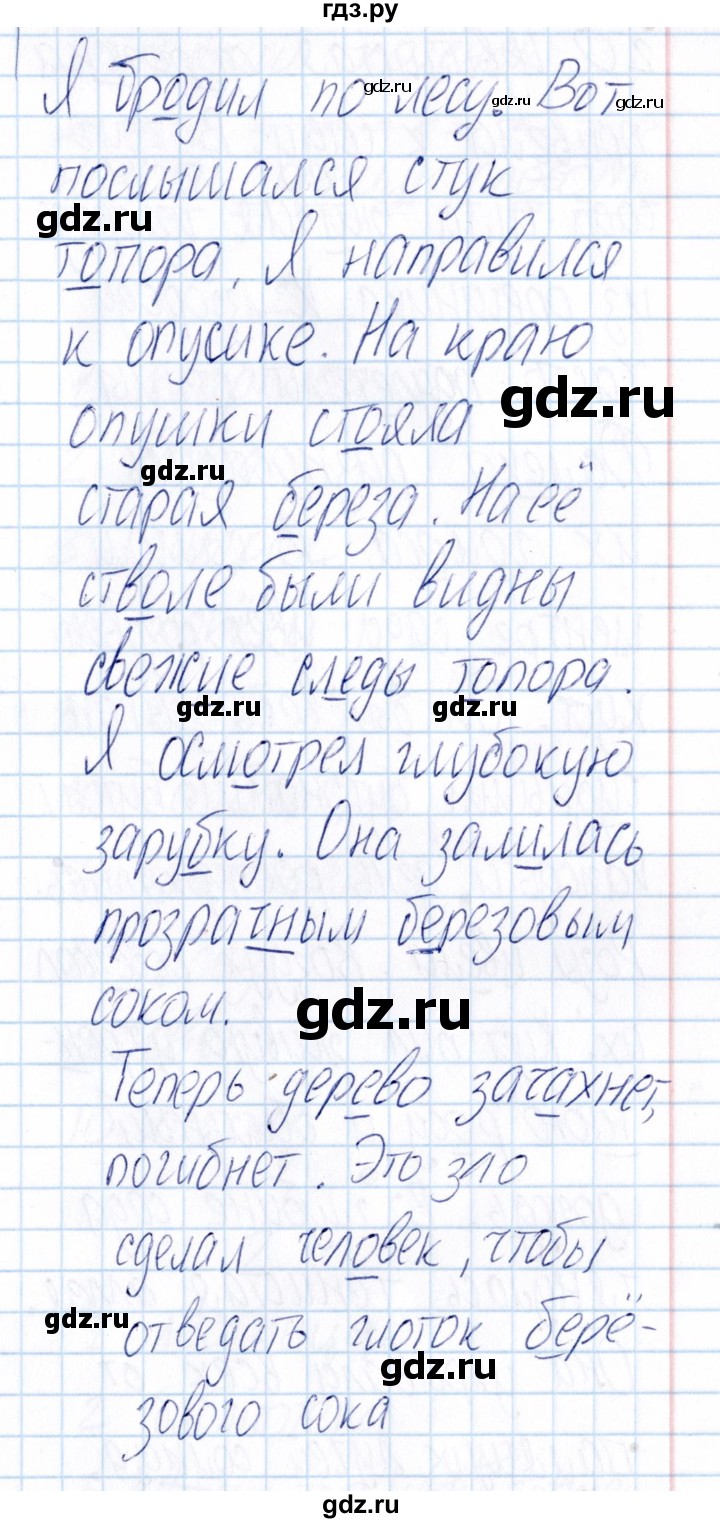 гдз.ру
Я бродил по лесу. Вот
gdz.ru gdz.ru
послышался стук
gdz.ru
топора. Я направился
к опушке. На краю
gdz.ru
опушки стояла
gdz.ru
старая береза. На её
стволе были видны
свежие следы топора.
gdz.ru gdz.ru
Я осмотрел глубокую
зарубку. Она залилась
прозрачным березовым
соком.
gdz.ru
Теперь дерево зачахнет,
погибнет. Это зло
сделал человек, чтобы
gdz.ru
отведать глоток берё-
gdz.ru
зового сока
gdz.ru